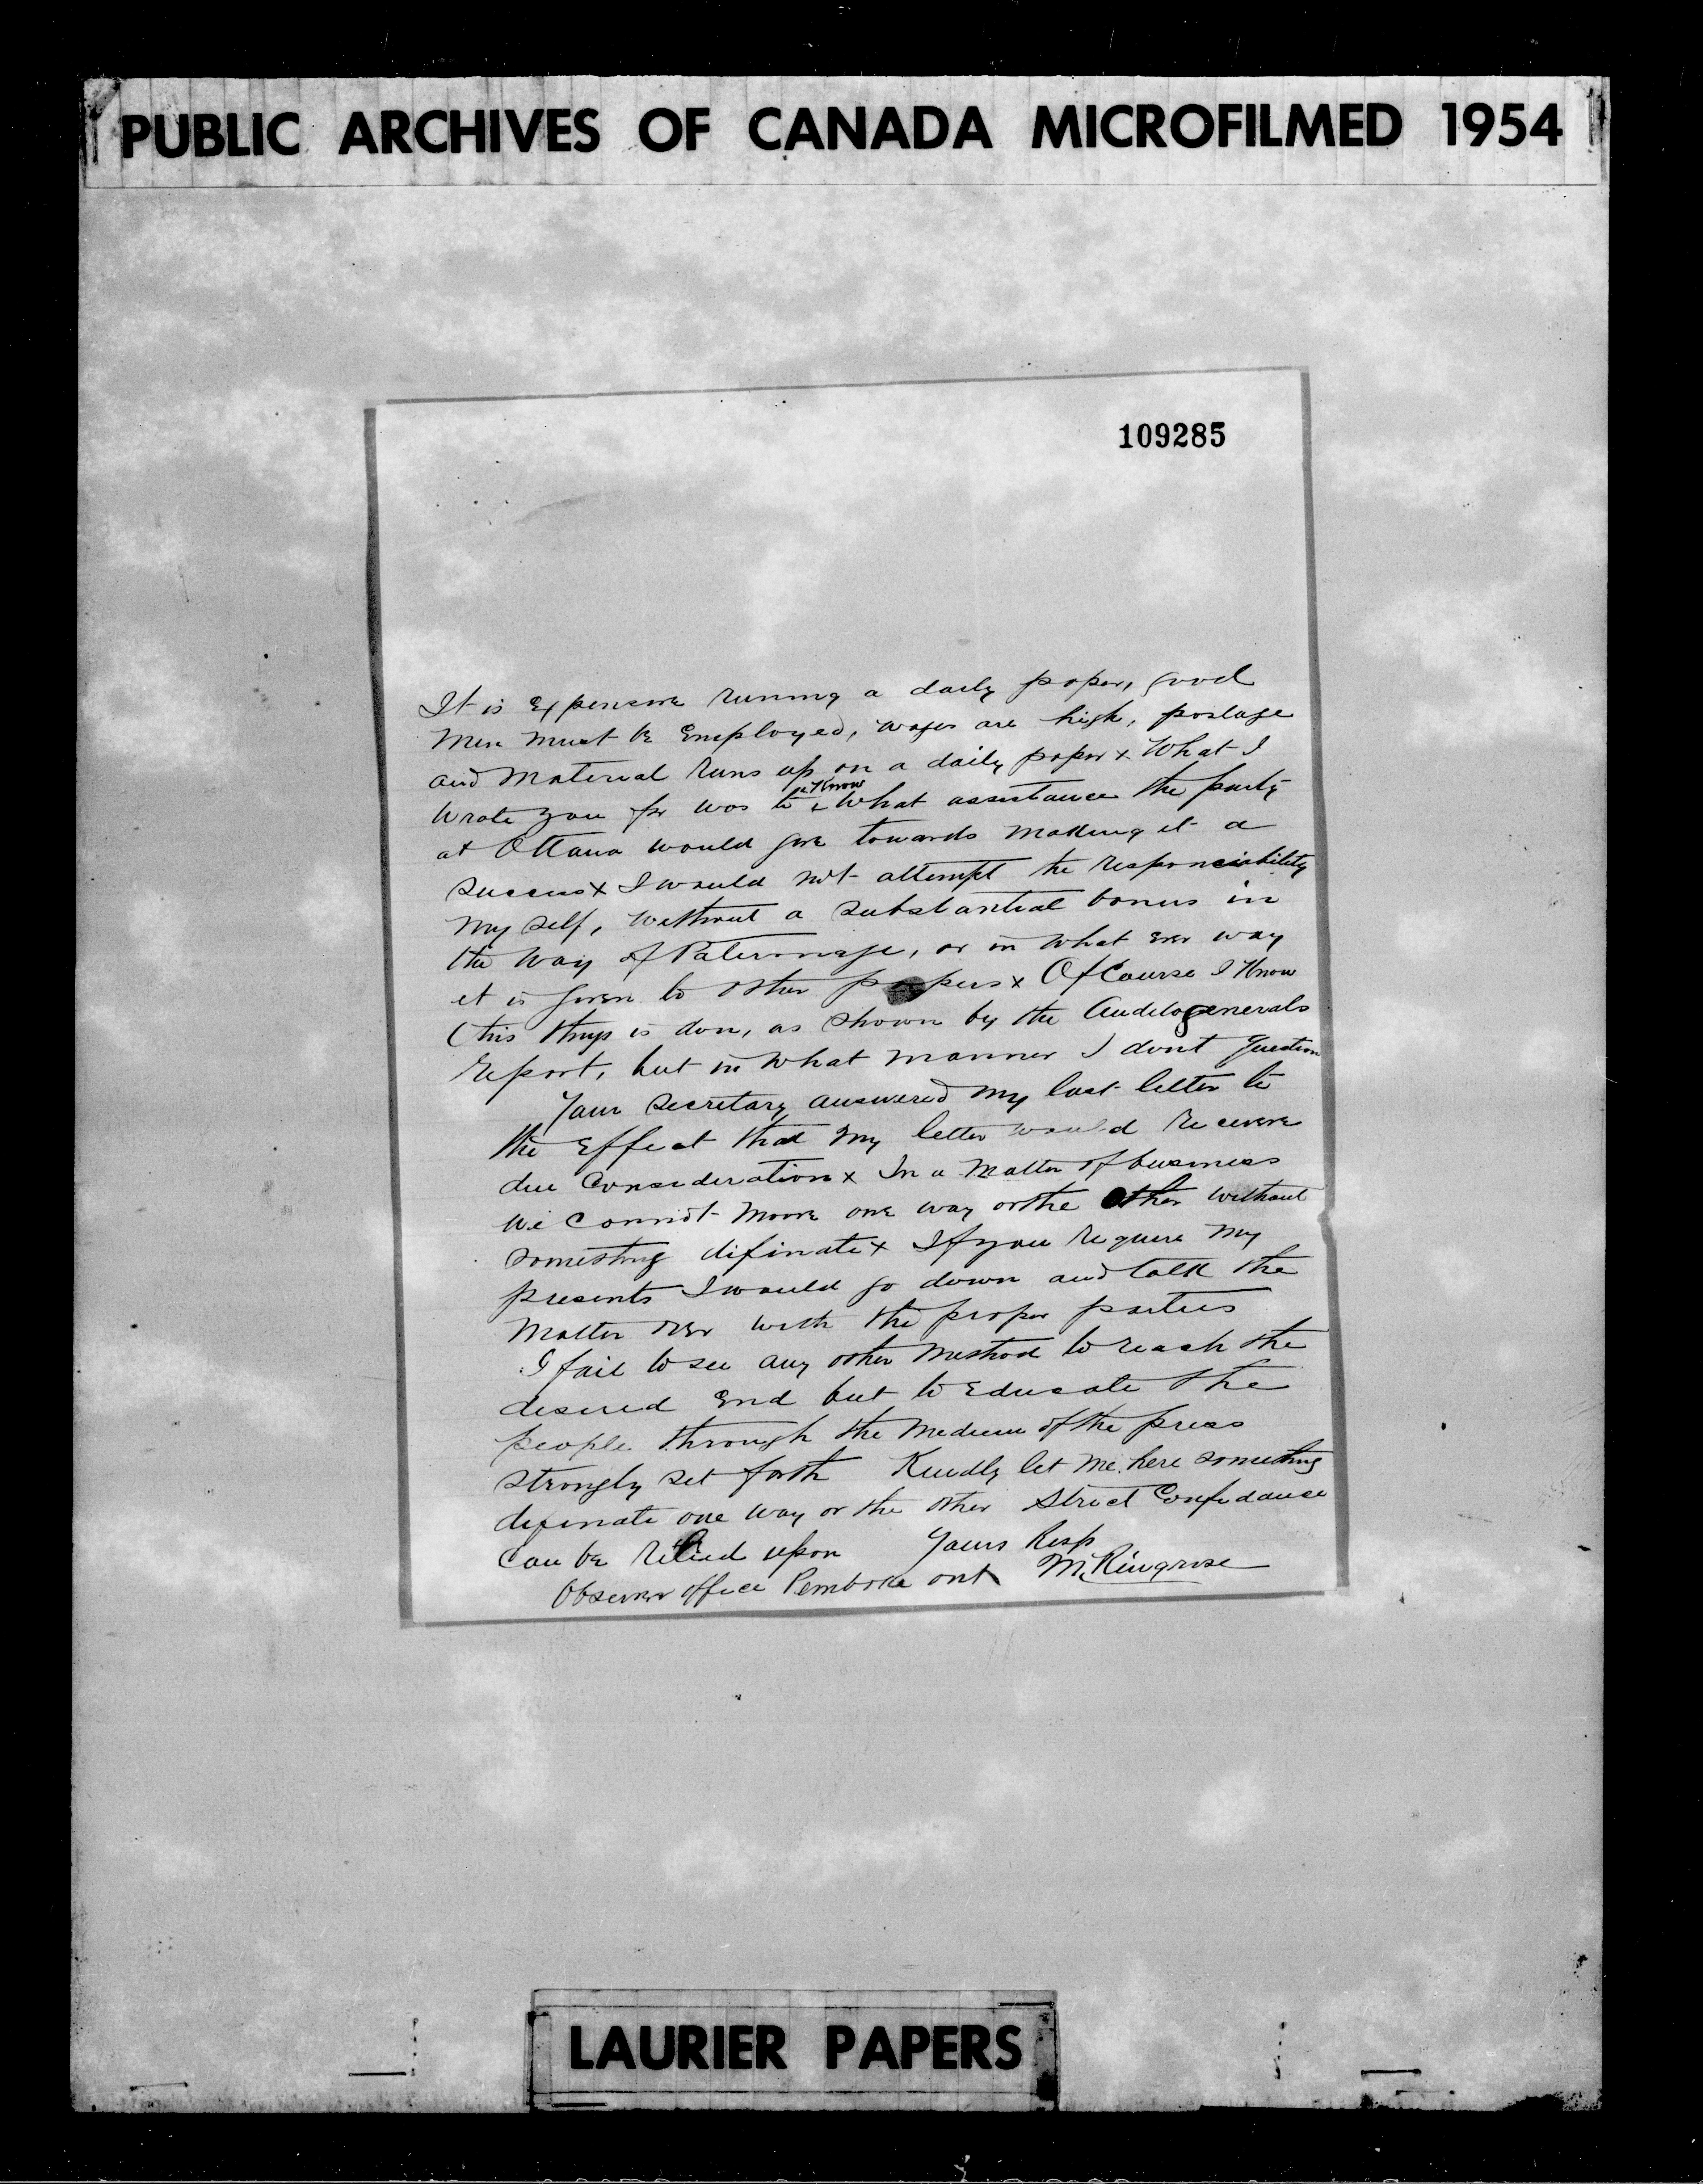 PUBLIC ARCHIVES OF CANADA MICROFILMED 1954
109285
It is Expensive runing a daily paper, good
Men must be Employed, wages are high, postage
and Material runs up on a daily paper x What I
wrote you for was to Know what assistance the party
at Ottawa would give towards making it a
success x I would not attempt the responciability
my self, without a substantial bonus in
the way of Paternage, or in what ever way
it is given to other papers x Of Course I Know
this things is don, as shown by the Auditogenerals
report, but in what manner I dont question
Your Secretary answered my last letter to
the Effect that my letter would receive
due Consideration x In a Matter of business
we connot move one way or the other without
something difinate x If you require my
presents I would go down and talk the
Matter over with the proper parties
I fail to see any other method to reach the
desired End but to Educate the
people through the Medium of the press
strongly set forth Kindly let me here something
difinate one way or the other Strict Confidance
Can be relied upon Yours Resp
Observer office Pembroke ont M. Ringrose
LAURIER PAPERS